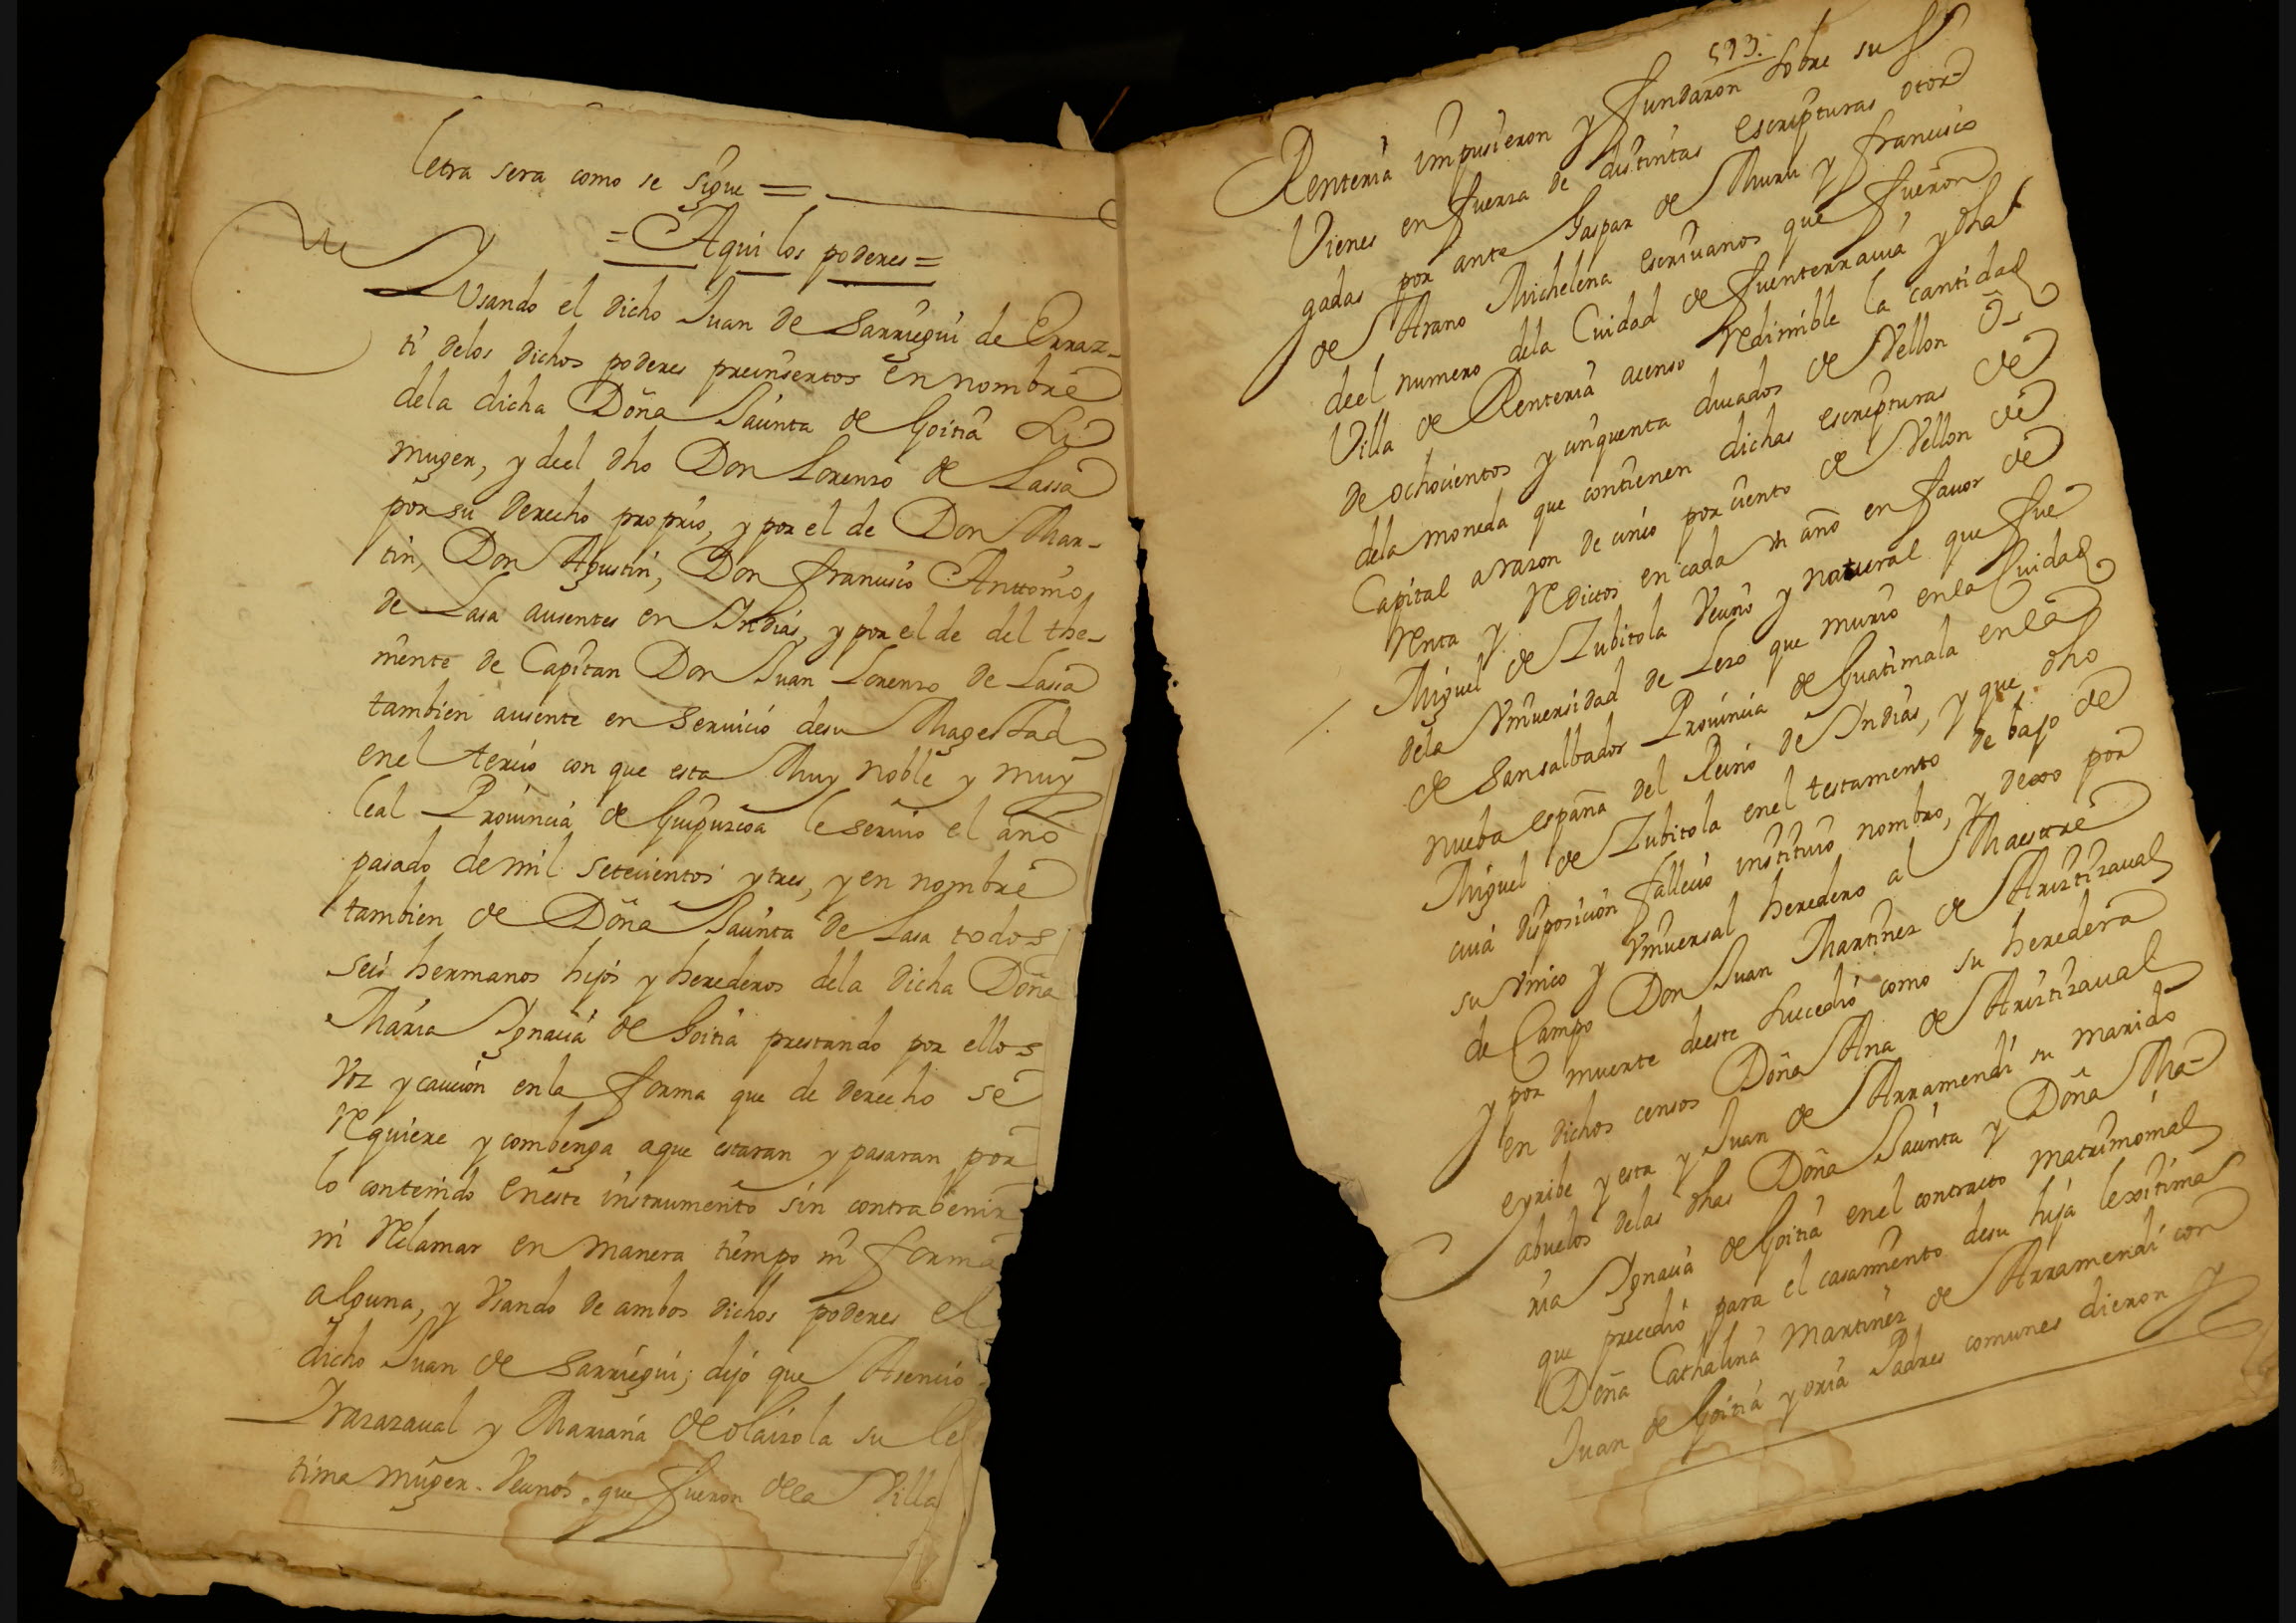 letra sera como se sigue =
= Aqui los poderes =
Usando el dicho Juan de Sarriegui de Erraz-
ti delos dichos poderes preinsertos en nombre
dela dicha Doña Jaunta de Goitia
muger, y deel dho Don Lorenzo de Lassa
por su derecho proprio, y por el de Don Mar-
tin, Don Agustin, Don francisco Anttonio
de Lasa ausentes en Yndias, y por el de del the-
niente de Capitan Don Juan Lorenzo de Lassa
tambien ausente en servicio desu Magestad
enel tercio con que esta Muy noble y muy
leal Provincia de Guipuzcoa le servio el año
pasado de mil setecientos y tres, y en nombre
tambien de Doña Jaunta de Lasa todos
seis hermanos hijos y herederos dela dicha Doña
Maria Ygnacia de Goitia prestando por ellos
voz y caucion enla forma que de derecho se
requiere y combenga aque estaran y pasaran por
lo contenido eneste instrumento sin contrabenir
ni reclamar en manera tiempo ni forma
alguna, y Usando de ambos dichos poderes el
dicho Juan de Sarriegui; dijo que Asencio
Yrazazaval y Mariana de olaizola su le
tima muger. Vecinos que fueron dela Villa
593.
Renteria impusieron y fundaron sobre sus
Vienes en fuerza de distintas escripturas otor-
gadas por ante Gaspar de Muru y francisco
de Arano Michelena escrivanos que fueron
deel numero dela Ciudad de fuenterravia y dha
Villa de Renteria acenso redimible la cantidad
de ochocientos y cinquenta ducados de Vellon o
dela moneda que contienen dichas escripturas de
Capital arazon de cinco por ciento de Vellon de
renta y reditos en cada un año en favor de
Miguel de Zubitola Vecino y natural que fue
dela Universidad de Lezo que murio enla Ciudad
de Sansalbador Provincia de Guatimala enla
nueba españa del Reino de Yndias, y que dho
Miguel de Zubitola enel testamento debajo de
cuia disposicion fallecio instituio nombro, y dexo por
su Unico y Universal heredero al Maestre
de Campo Don Juan Martinez de Ariztizaval
y por muerte deeste sucedio como su heredera
en dichos censos Doña Ana de Ariztizaval
eyribe y esta y Juan de Arramendi su marido
abuelos delas dhas Doña Jaunta y Doña Ma-
ria Ygnacia de Goitia enel contracto matrimonial
que precedio para el casamiento desu hija lexitima
Doña Cathalina Martinez de Arramendi con
Juan de Goitia y oria Padres comunes dieron y